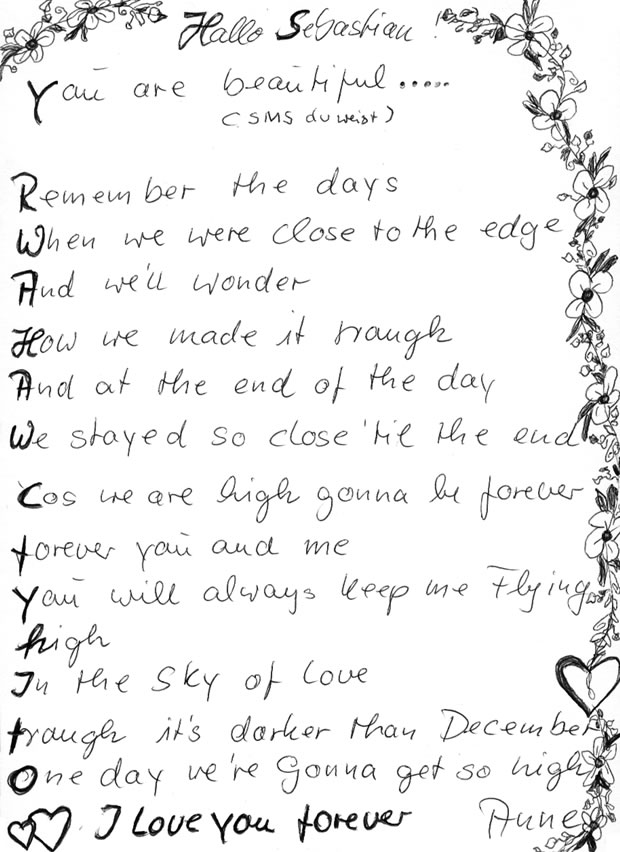 Hallo Sebastian !
You are beautiful.....
(SMS du weist)
Remember the days
When we were close to the edge
And we'll wonder
How we made it trough
And at the end of the day
We stayed so close 'til the end
Cos we are high gonna be forever
forever you and me
You will always keep me Flying
high
In the Sky of Love
trough it's darker than December
One day we're Gonna get so high
I Love you forever Anne